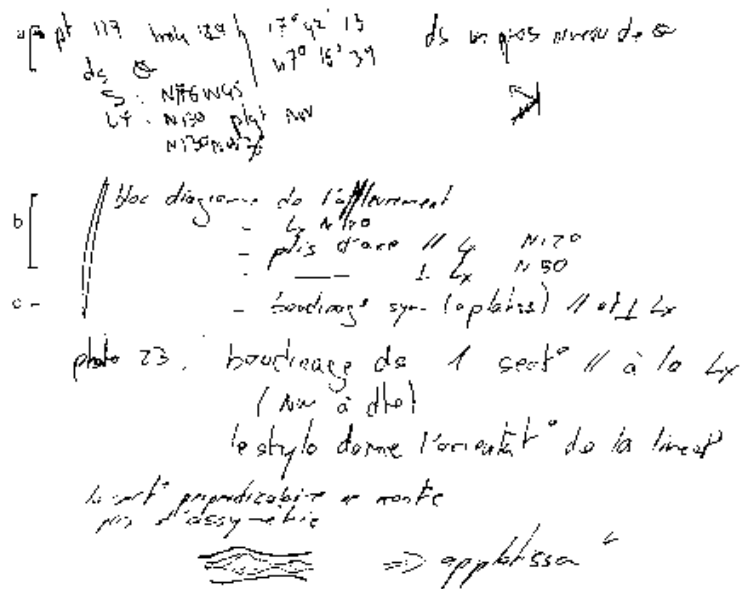 a pt 117 17° 42' 13 ds un gros niveau de
ds 47° 15' 39
S : N76 NW45
Lx : N130 plgt NW
b bloc diagramme de l'affleurement
- Lx N120
- plis d'axe // Lx N120
- —— ⊥ Lx N30
c - - boudinage sym (aplatiss) // et ⊥ Lx
photo 23. boudinage de 1 sect° // à la Lx
(NW à dte)
le stylo donne l'orientat° de la lineat°
la sect° perpendiculaire en montre
pas d'assymétrie
=> applatissa